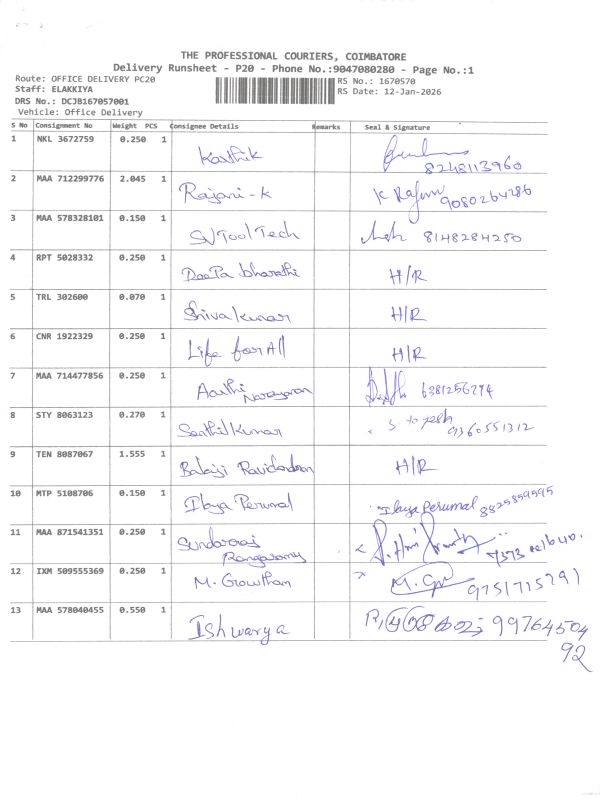 THE PROFESSIONAL COURIERS, COIMBATORE
Delivery Runsheet - P20 - Phone No.:9047080280 - Page No.:1
Route: OFFICE DELIVERY PC20
RS No.: 1670570
Staff: ELAKKIYA
RS Date: 12-Jan-2026
DRS No.: DCJB167057001
Vehicle: Office Delivery
S No Consignment No Weight PCS Consignee Details Remarks Seal & Signature
1 NKL 3672759 0.250 1 Karthik 8248113960
2 MAA 712299776 2.045 1 Rajani-K K Rajani 9080264286
3 MAA 578328101 0.150 1 SVToolTech 8148284250
4 RPT 5028332 0.250 1 DeePa bharathi H/R
5 TRL 302600 0.070 1 Shivakumar H/R
6 CNR 1922329 0.250 1 Life for All H/R
7 MAA 714477856 0.250 1 Aarthi Narayanan 6381256294
8 STY 8063123 0.270 1 Senthil Kumar 9360551312
9 TEN 8087067 1.555 1 Balaji Ravichandran H/R
10 MTP 5108706 0.150 1 Ilaya Perumal Ilaya Perumal 8825859595
11 MAA 871541351 0.250 1 Sundarraj Rangasamy
12 IXM 509555369 0.250 1 M. Gowtham M. Gow 9751715291
13 MAA 578040455 0.550 1 Ishwarya 99764504
92